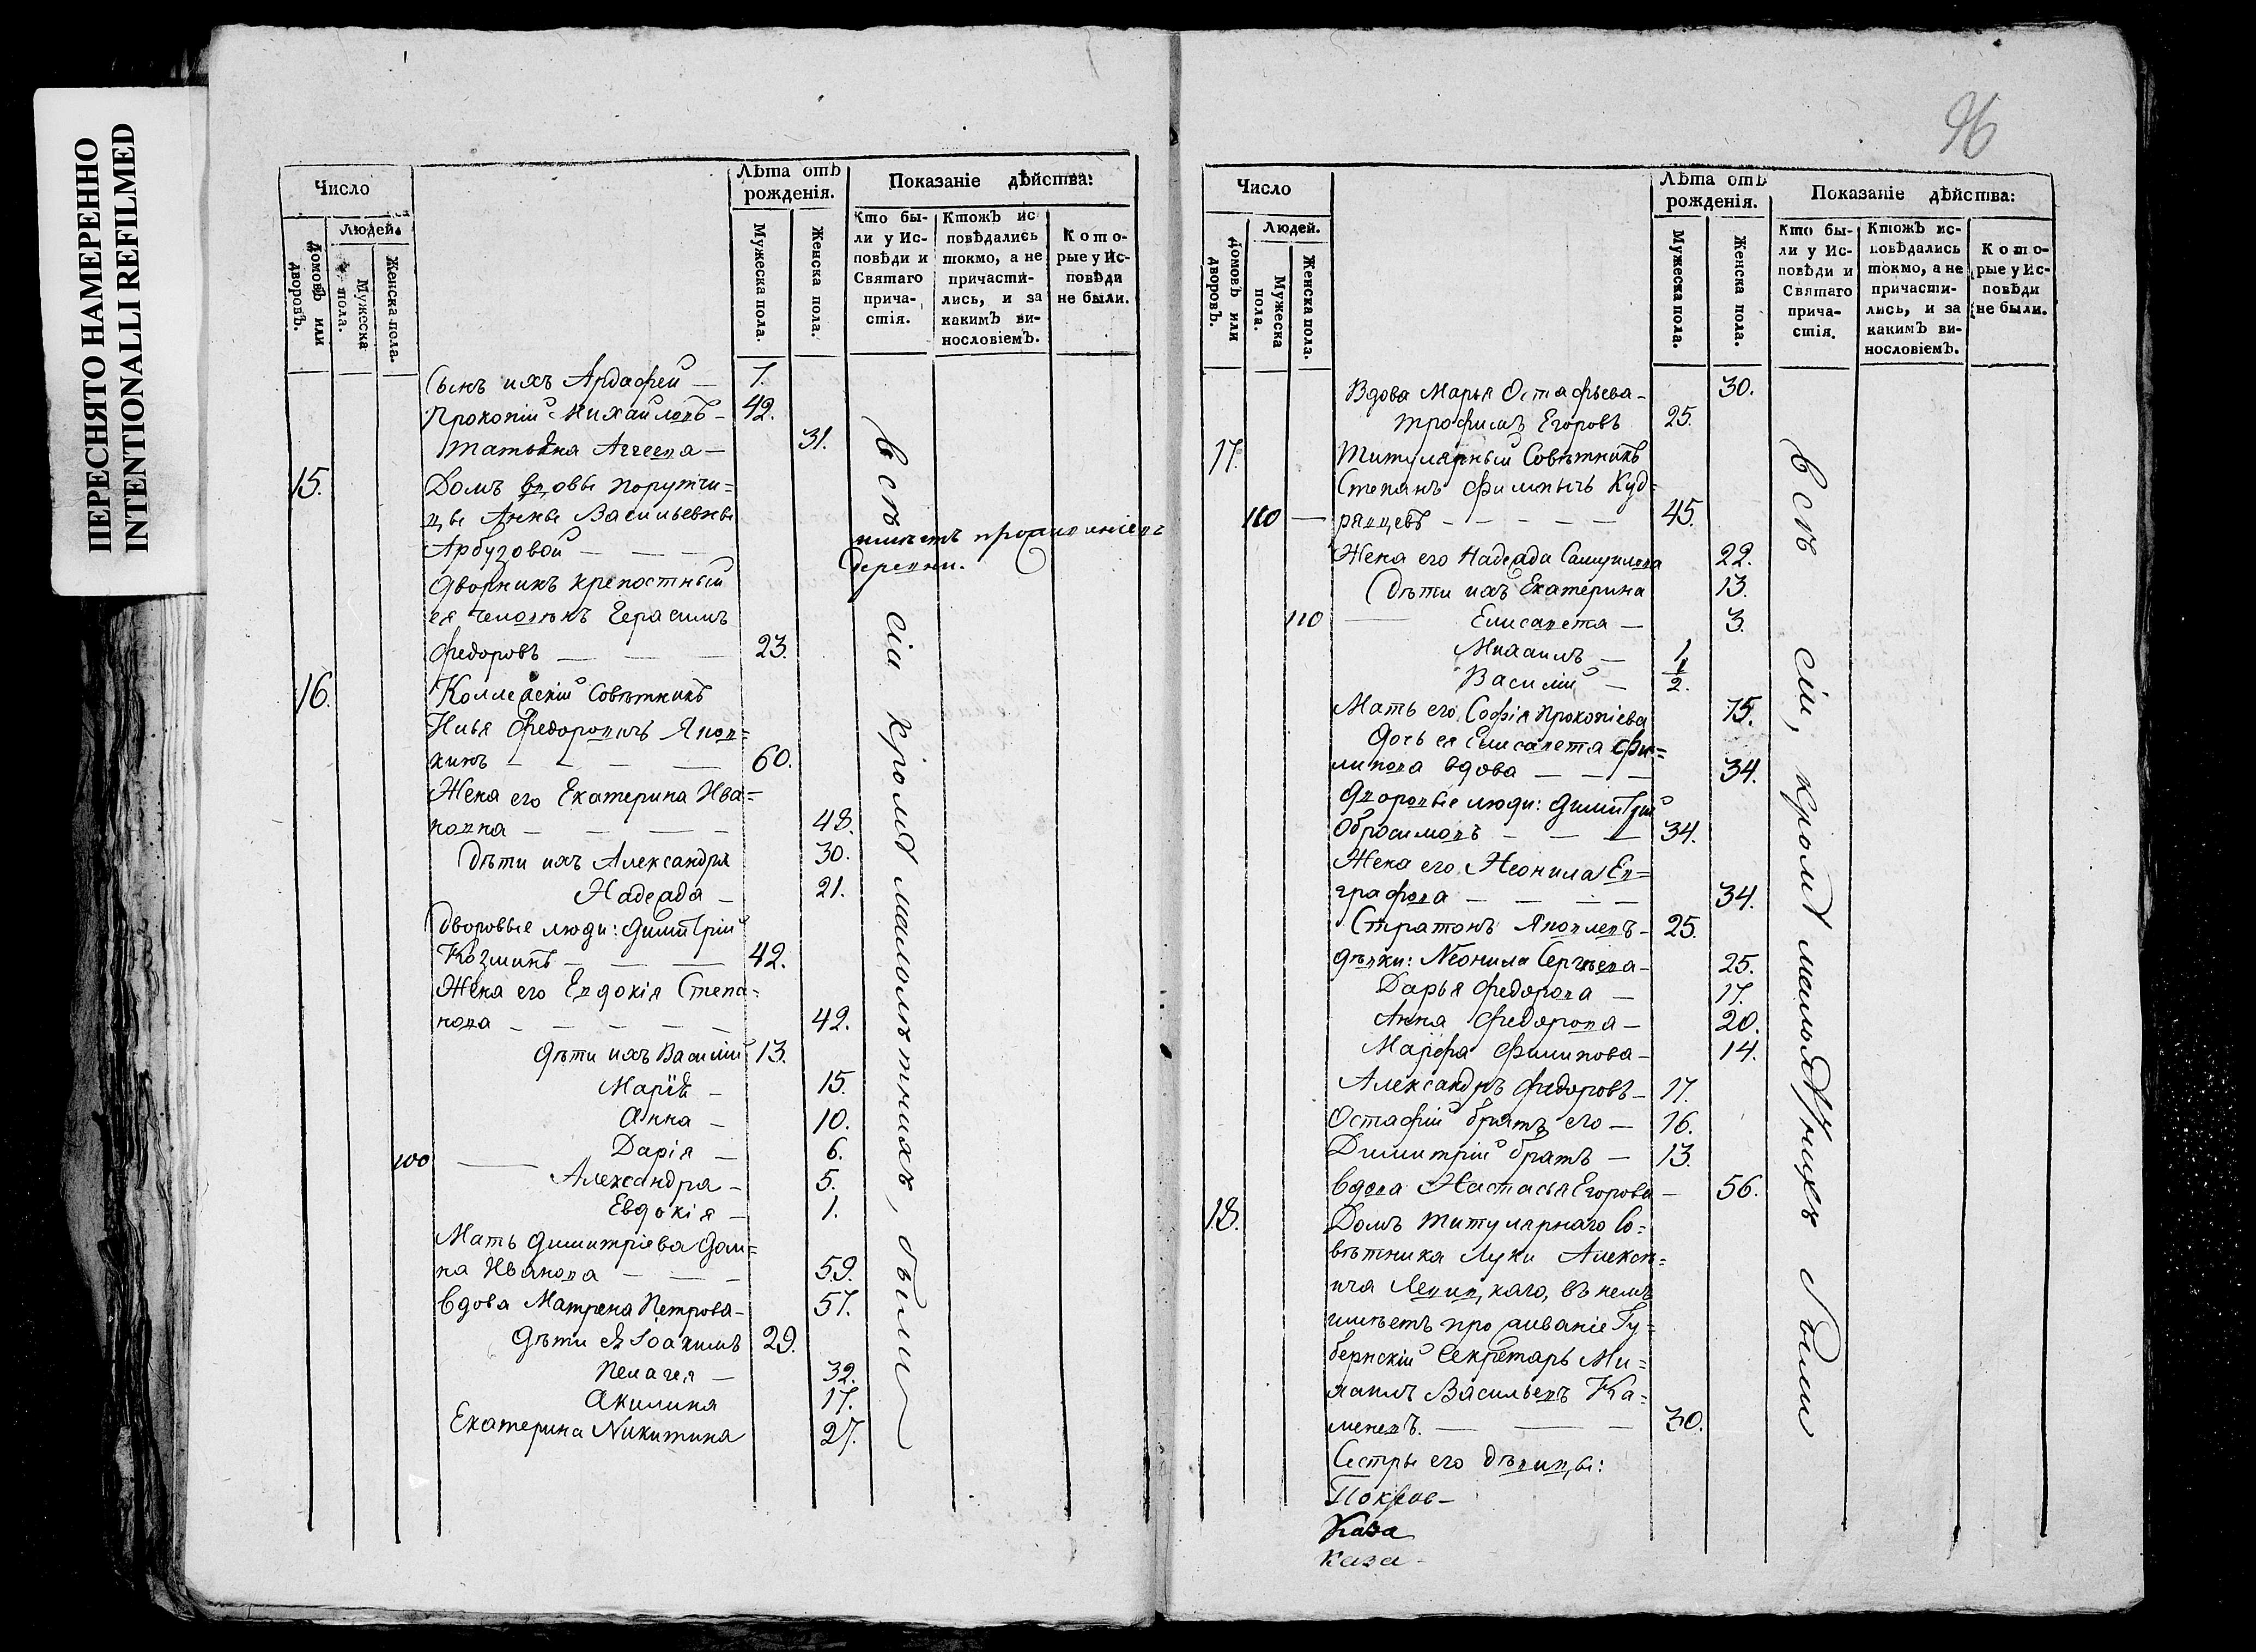 ПЕРЕСНЯТО НАМЕРЕННО
INTENTIONALLI REFILMED
96
Число
Лѣта отъ
рожденія.
Показаніе дѣйства:
Людей.
домовъ или
дворовъ.
Мужеска
пола.
Женска пола.
Мужеска пола.
Женска пола.
Кто бы-
ли у Ис-
повѣди и
Святаго
прича-
стія.
Ктожъ ис-
повѣдались
токмо, а не
причасти-
лись, и за
какимъ ви-
нословіемъ.
Кото-
рые у Ис-
повѣди
не были.
Сынъ ихъ 7.
Прокопій Михайловъ - 42.
Татьяна Аггеева - 31.
15. Домъ вдовы порутчи=
цы Анны Васильевны
Арбузовой
дворникъ крепостный
ея человѣкъ Герасимъ
Федоровъ 23.
имѣетъ
деревни.
16. Коллежскій Совѣтникъ
Илья Федоровичъ Яков=
кинъ 60.
Жена его Екатерина Ива=
новна 48.
Дѣти ихъ Александра 30.
Надежда - 21.
Дворовые люди: Димитрій
Козминъ 42.
Жена его Евдокія Степа=
нова 42.
Дѣти ихъ Василій 13.
Марія - 15.
Анна - 10.
Дарія - 6.
100 Александра - 5.
Евдокія - 1.
Мать Димитріева Дом=
на Иванова 59.
Вдова Матрена Петрова - 57.
Дѣти ея Іоакимъ 29.
Пелагея - 32.
Акилина 17.
Екатерина Никитина 27.
всѣ сіи кромѣ малолѣтнихъ, были
Число
Лѣта отъ
рожденія.
Показаніе дѣйства:
Людей.
домовъ или
дворовъ.
Мужеска
пола.
Женска пола.
Мужеска пола.
Женска пола.
Кто бы-
ли у Ис-
повѣди и
Святаго
прича-
стія.
Ктожъ ис-
повѣдались
токмо, а не
причасти-
лись, и за
какимъ ви-
нословіемъ.
Кото-
рые у Ис-
повѣди
не были.
Вдова Марья Остафьева - 30.
Трофимъ Егоровъ 25.
17. Титулярный Совѣтникъ
Степанъ Филипычъ Куд=
110 — рявцевъ 45.
Жена его Надежда Самуилова 22.
Дѣти ихъ Екатерина 13.
110 Елисавета - 3.
Михаилъ - 1
Василій - 1/2.
Мать его Софія Прокопіева 75.
Дочь ея Елисавета Фи=
липова вдова 34.
Дворовые люди: Димитрій
Обросимовъ 34.
Жена его Неонила Ев=
графова 34.
Стратонъ Яковлевъ - 25.
Дѣвки: Неонила Сергѣева - 25.
Дарья Федорова 17.
Анна Федорова - 20.
Марфа Филипова - 14.
Александръ Федоровъ - 17.
Остафій братъ его - 16.
Димитрій братъ - 13.
Вдова Настасья Егорова - 56.
18. Домъ Титулярнаго Со=
вѣтника Луки Алексѣ=
ича Левицкаго, въ немъ
имѣетъ проживаніе Гу=
бернскій Секретарь Ми=
хаилъ Васильевъ Ка=
меневъ. 30.
Сестры его дѣвицы:
Покров-
Каза
каза-
всѣ сіи, кромѣ малолѣтнихъ были